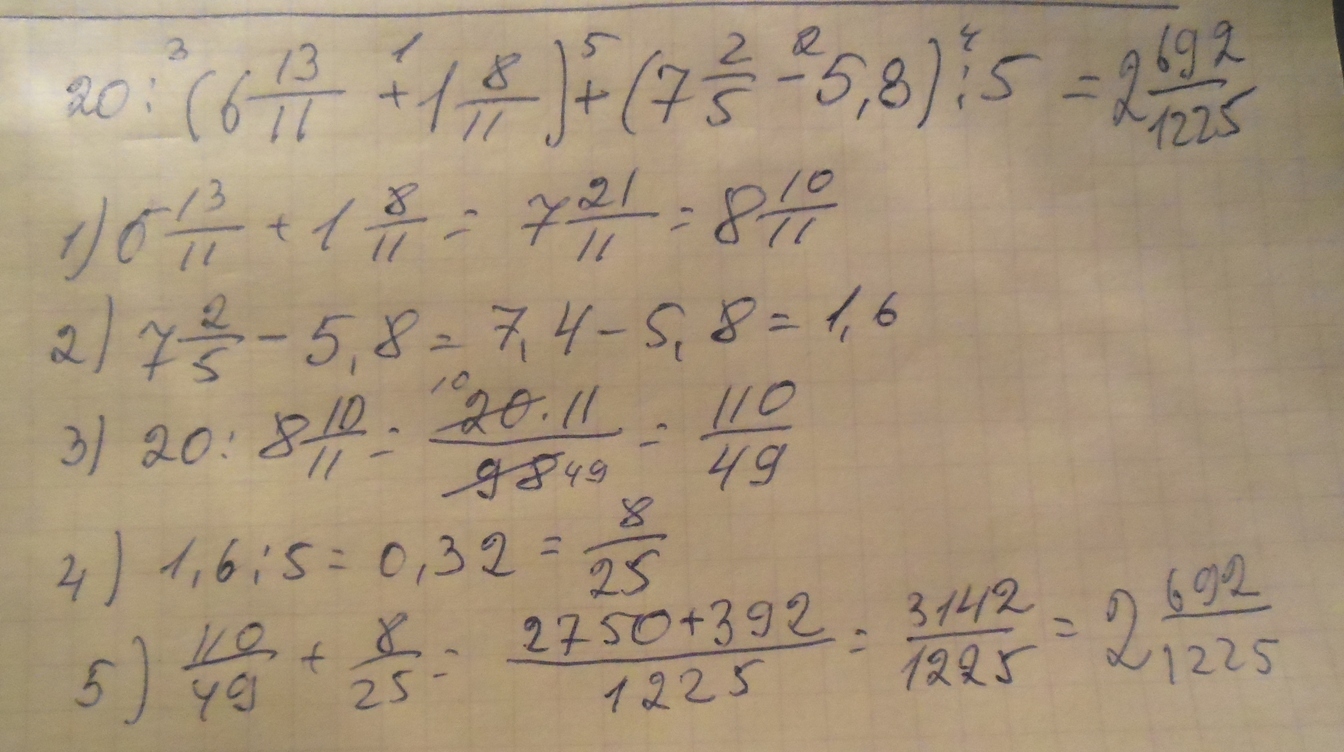 20 : (6 13/11 + 1 8/11) + (7 2/5 - 5,8) : 5 = 2 692/1225
3 1 5 2 4
1) 6 13/11 + 1 8/11 = 7 21/11 = 8 10/11
2) 7 2/5 - 5,8 = 7,4 - 5,8 = 1,6
3) 20 : 8 10/11 = 10 20·11/98 49 = 110/49
4) 1,6 : 5 = 0,32 = 8/25
5) 110/49 + 8/25 = 2750+392/1225 = 3142/1225 = 2 692/1225